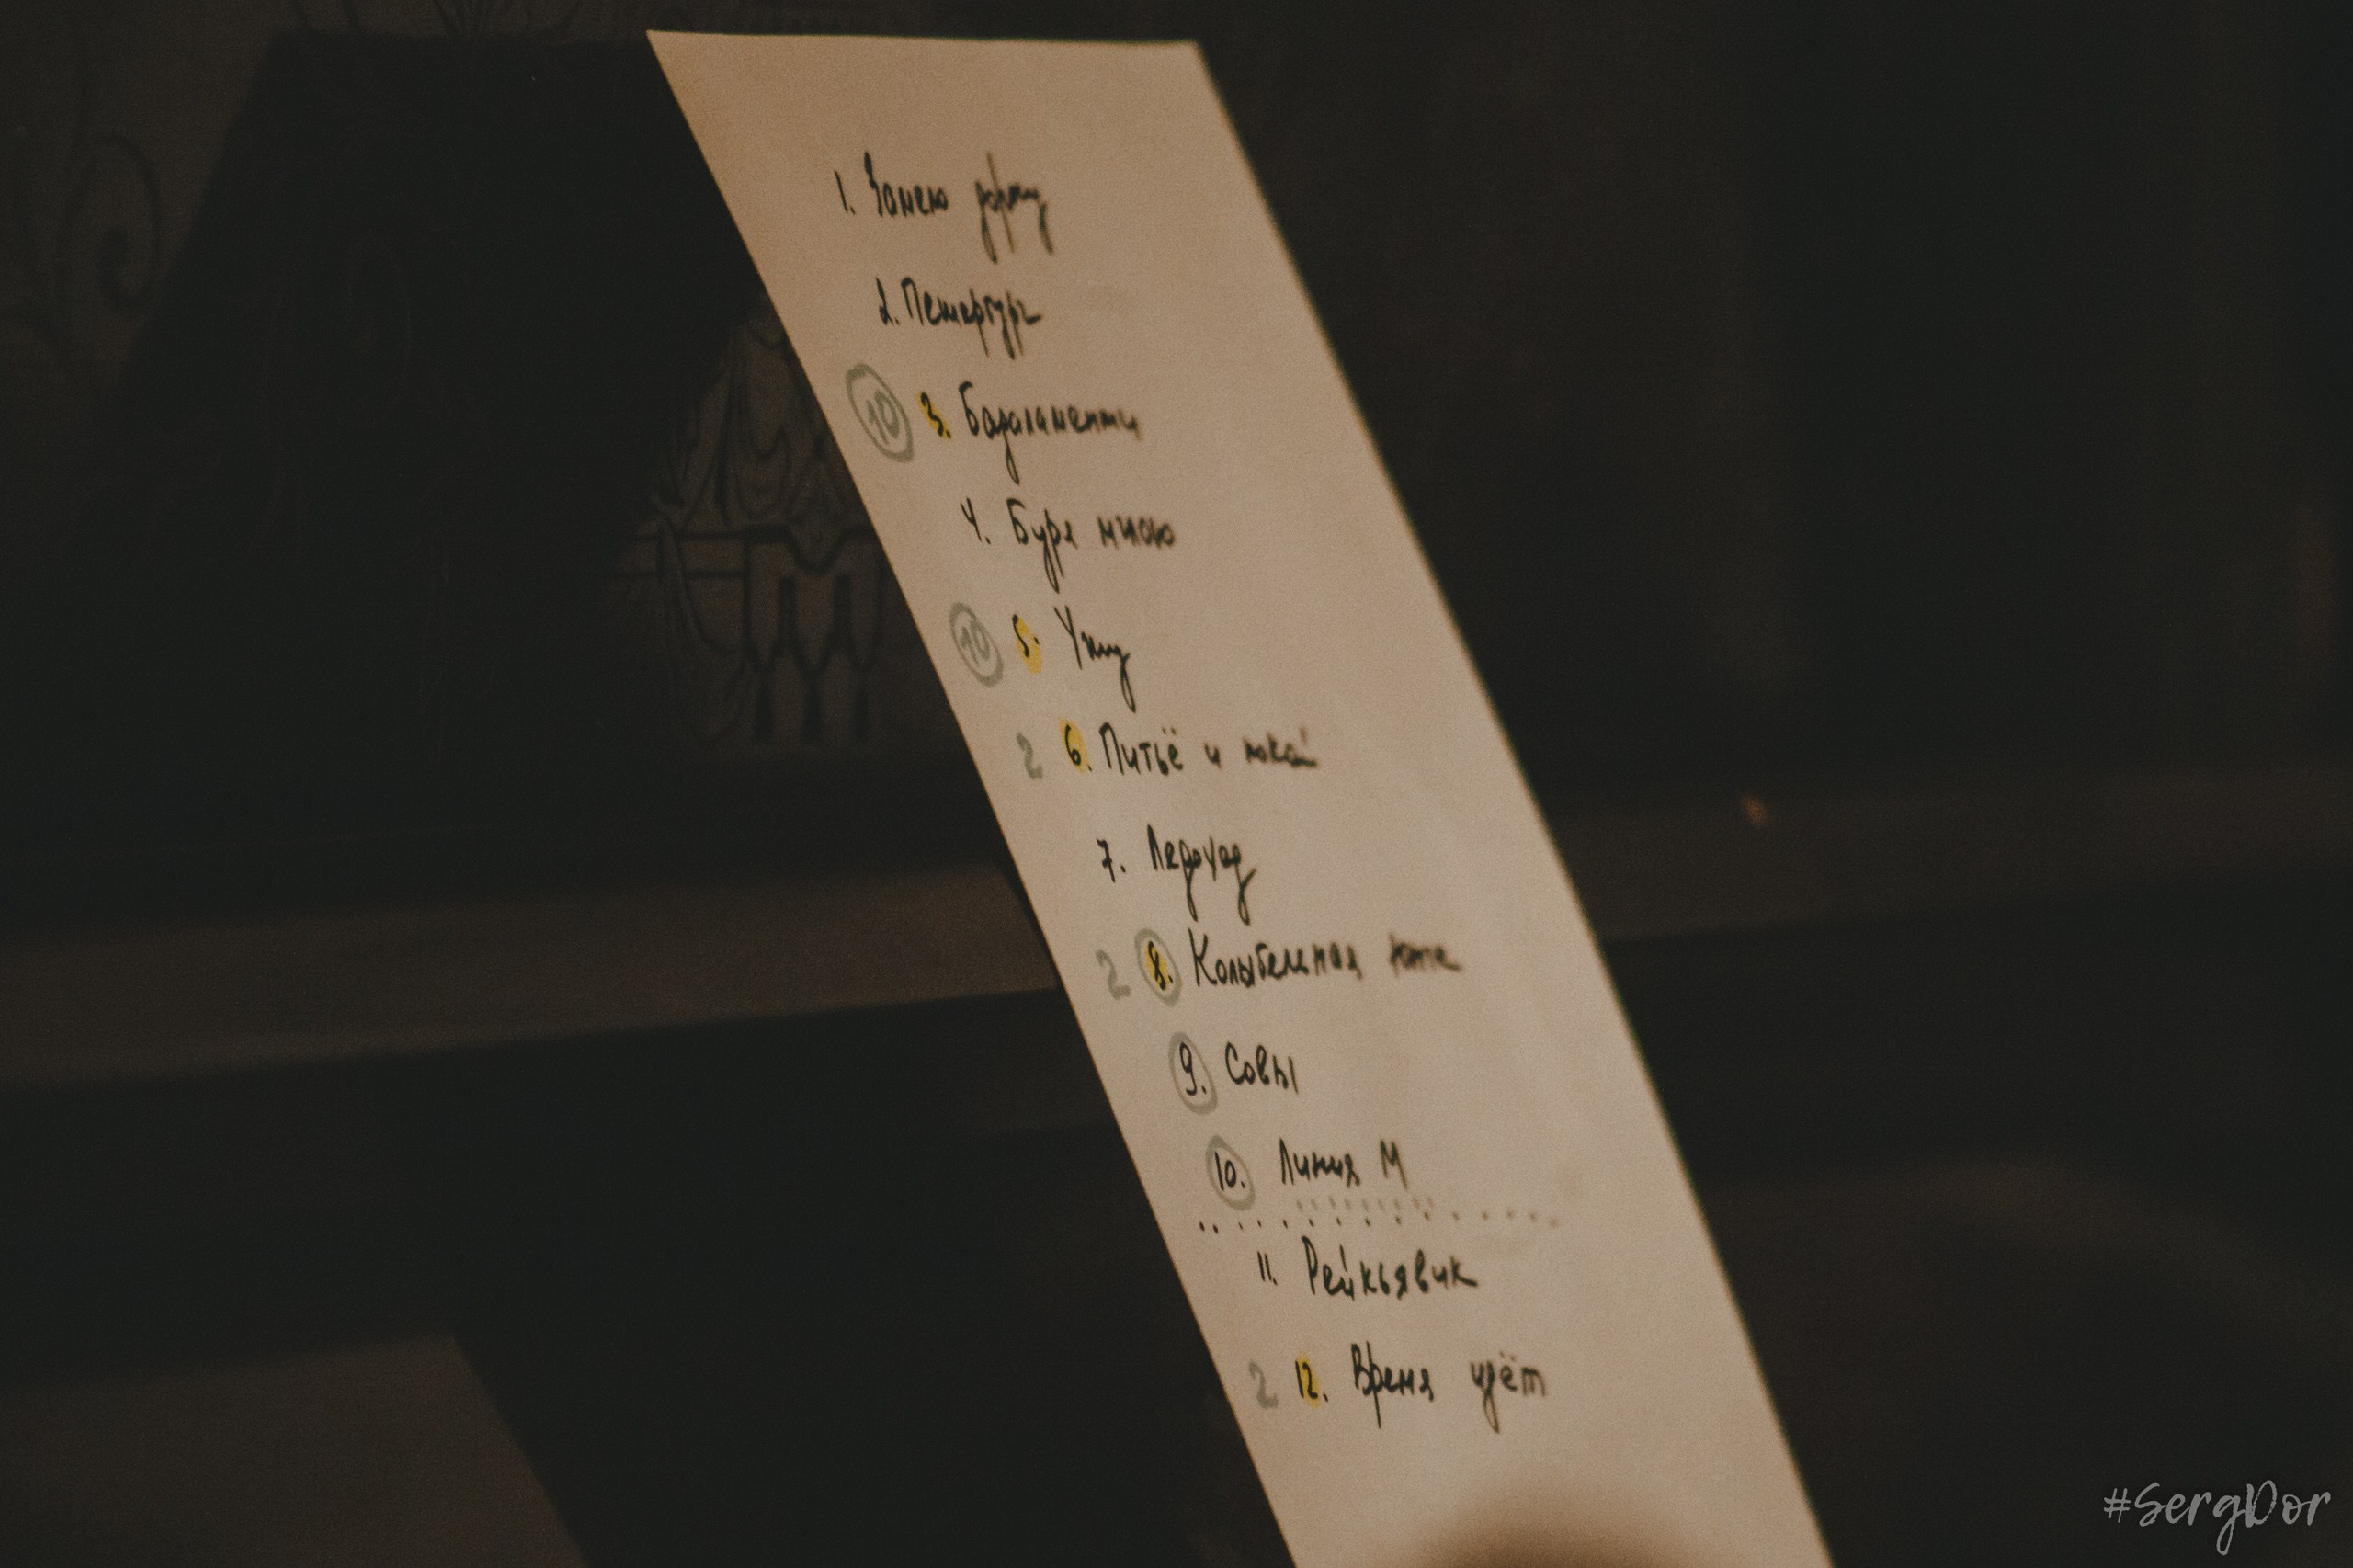 1. Замело дорогу
2. Петербург
10 3. Бадаламенти
4. Буря мглою
10 5. Ухжу
2 6. Питьё и покой
7. Ледоход
2 8. Колыбельная
9. Совы
10. Линия М
11. Рейкьявик
2 12. Время идёт
#SergDor